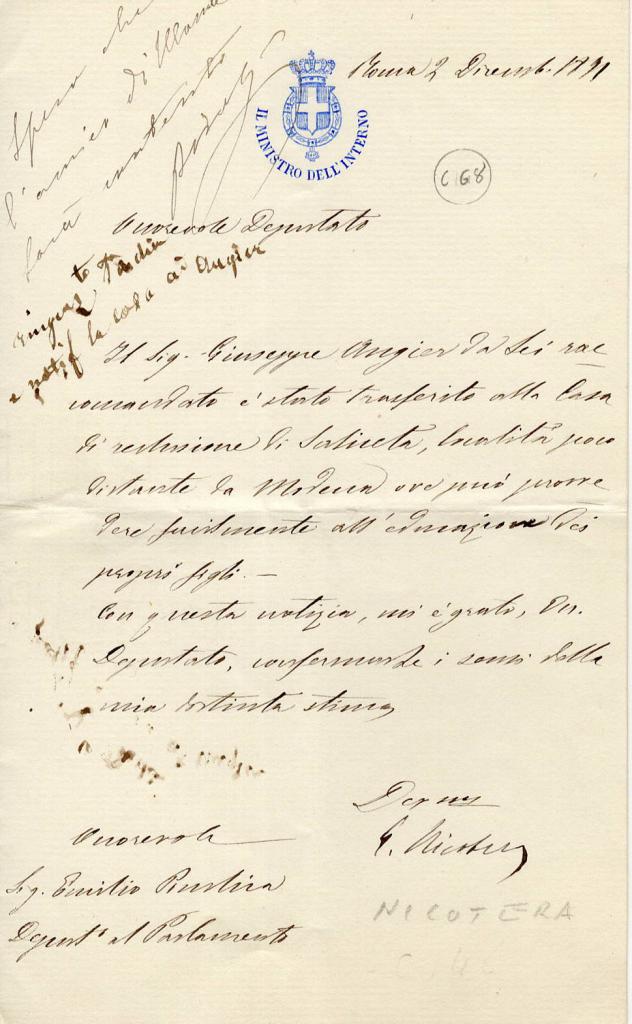 Spero che
l'amico di
sarà contento
Roma 2 Dicemb. 1891
IL MINISTRO DELL'INTERNO
C168
Onorevole Deputato
e notif la cosa ad Angier
Il Sig. Giuseppe Angier da Lei rac
comandato è stato trasferito alla Casa
di reclusione di Saliceta, località poco
distante da Modena ove può provve
dere facilmente all'educazione dei
propri figli. —
Con questa notizia, mi è grato, On.
Deputato, confermarle i sensi della
mia distinta stima
Dev mo
G. Nicotera
Onorevole
Sig. Emilio
Deput° al Parlamento
NICOTERA